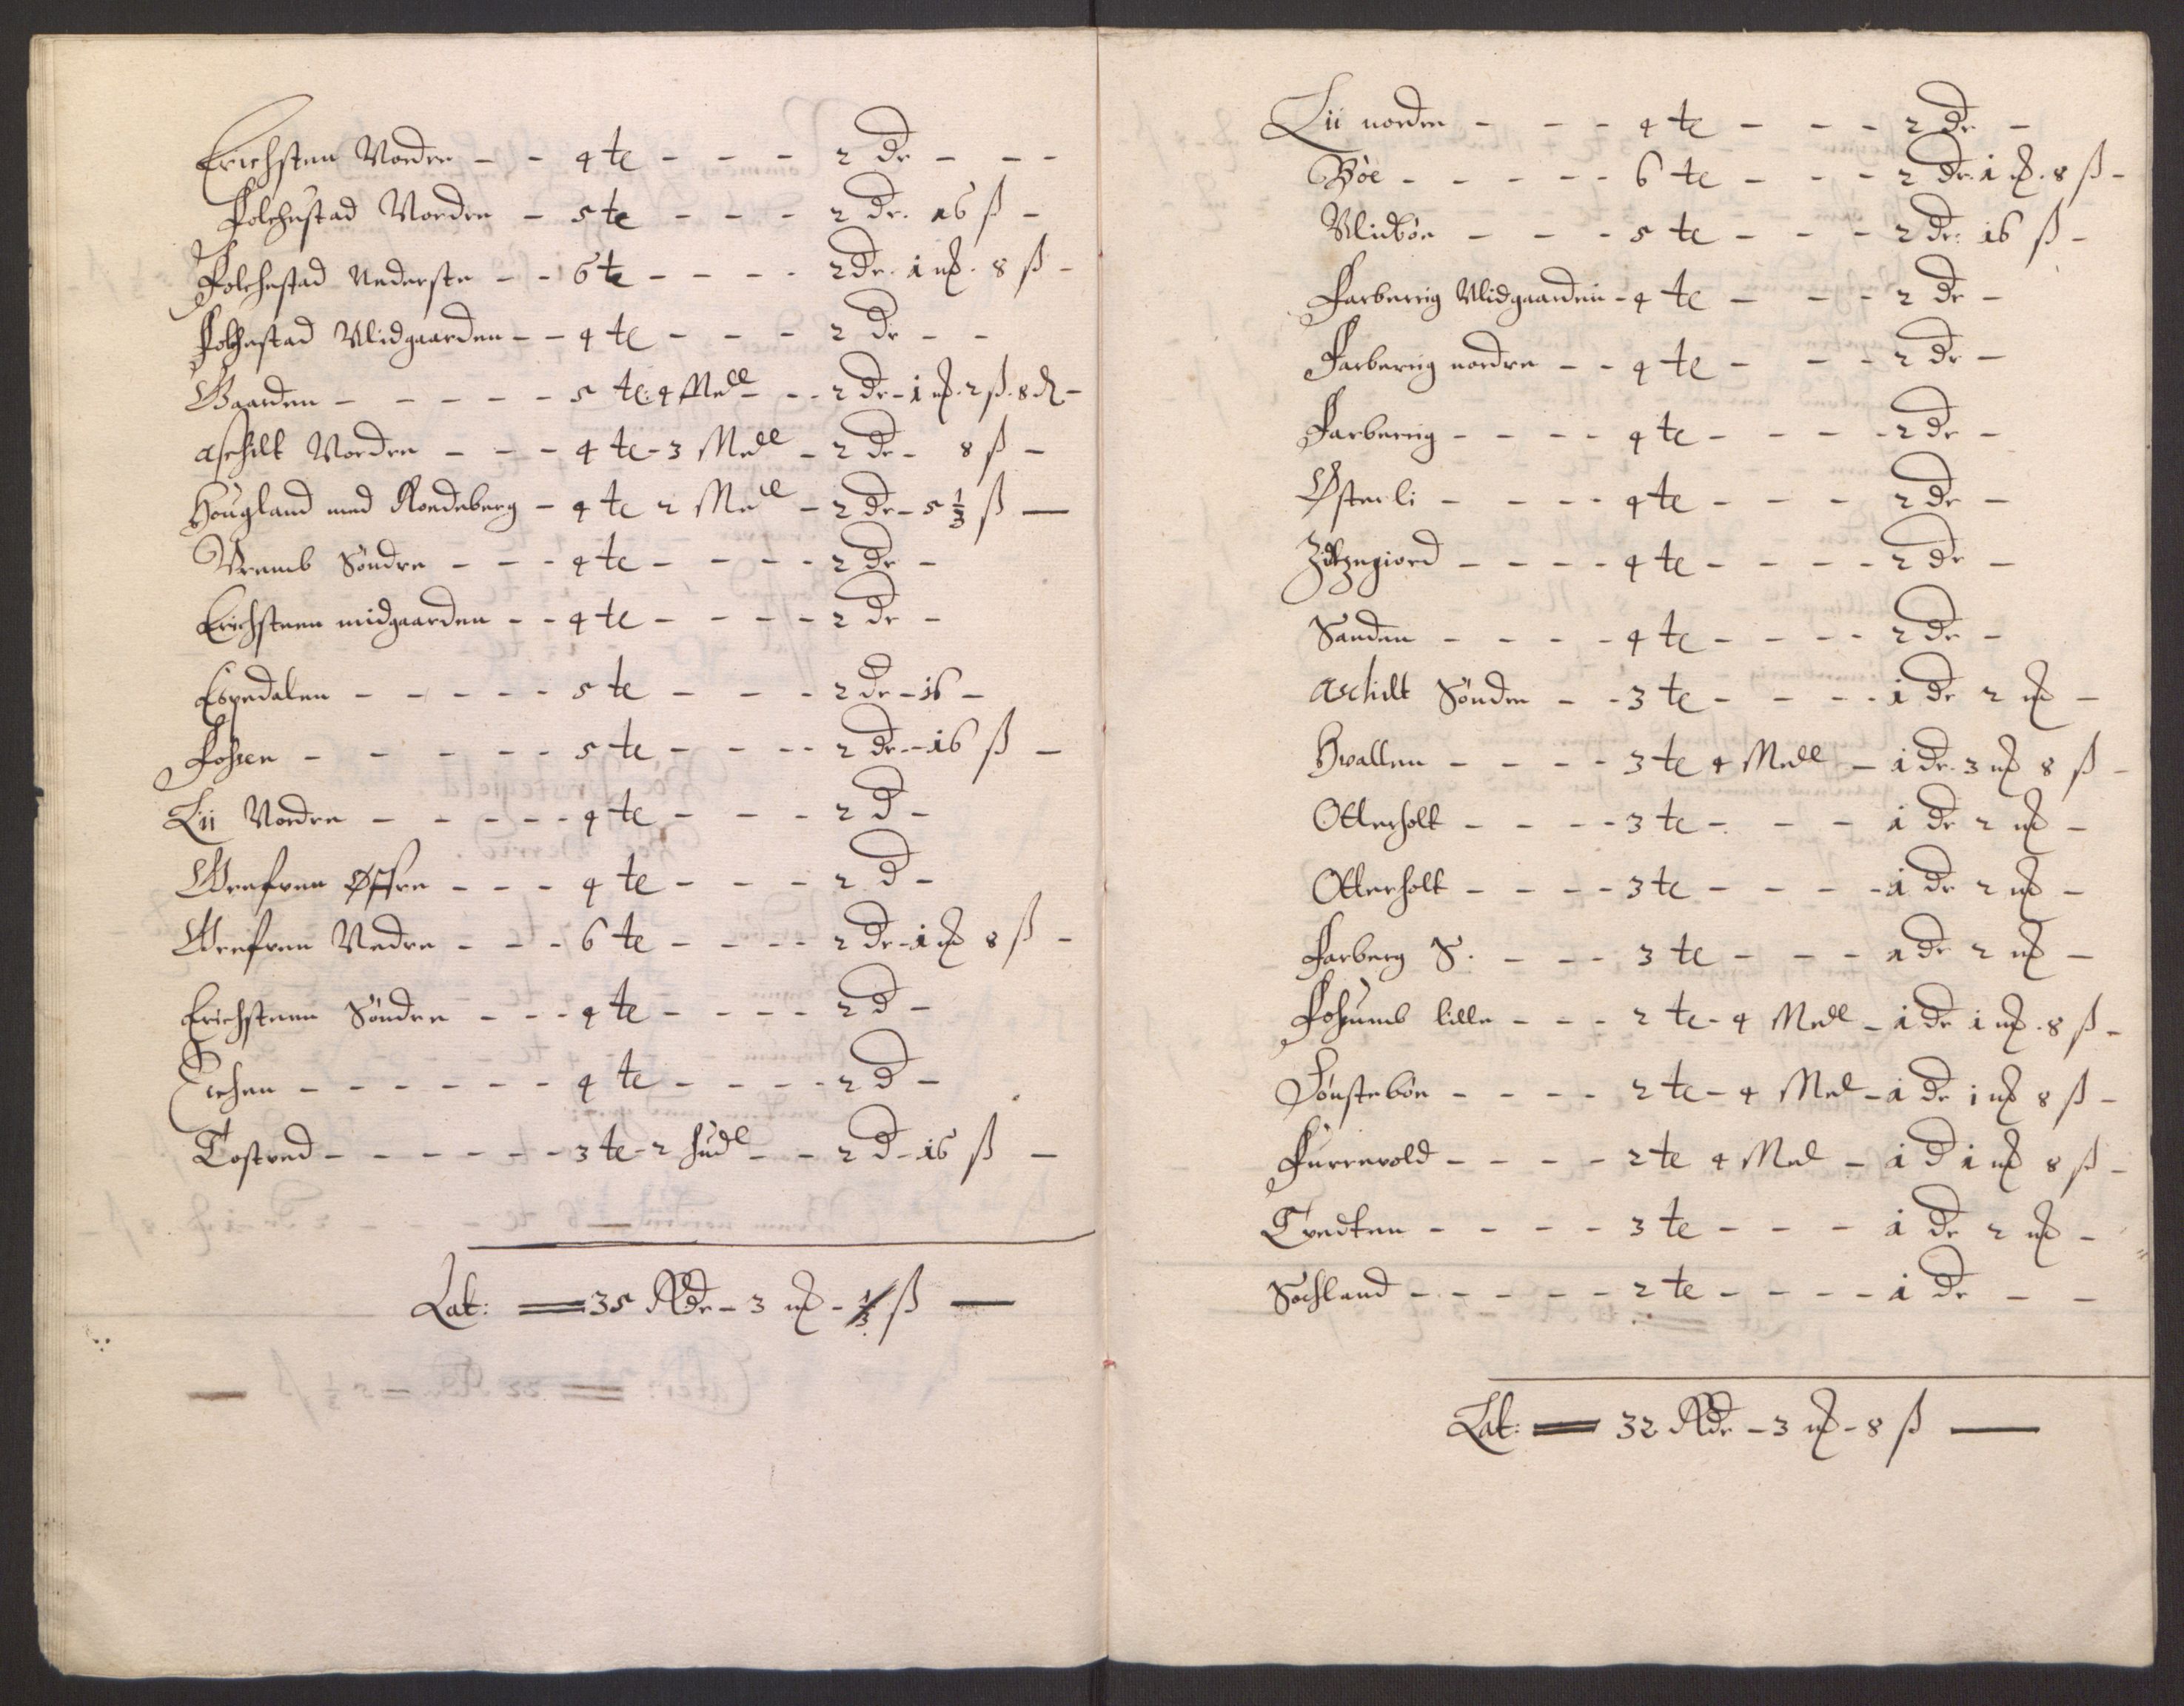 Erichsten Nordre - - 4 te - - - 2 dr - - -
Folchestad Nordre - 5 te - - - 2 dr. 16 ß -
Folchestad Nederste - - 6 te - - - - 2 dr. 1 mk. 8 ß -
Folchestad Midgaarden - - 4 te - - - 2 dr - -
Gaarden - - - - - 5 te: 4 Mell - - 2 dr - 1 mk. 2 ß. 8 d -
Aschilt Nordre - - - 4 te - 3 Mell - 2 dr - 8 ß -
Hougland med Roedeberg - 4 te 2 Mell - 2 dr - 5 1/3 ß -
Vreumb Söndre - - - 4 te - - - - 2 dr -
Erichsteen midgaarden - - 4 te - - - - 2 dr -
Espedalen - - - - - 5 te - - - 2 dr - 16 -
Fossen - - - - - 5 te - - - - 2 dr - 16 ß -
Lii Nordre - - - - - 4 te - - - 2 d -
Grefven Øfre - - - 4 te - - - 2 d -
Grefven Nedre - - - 6 te - - - - 2 dr - 1 mk 8 ß -
Erichsteen Söndre - - - 4 te - - - - 2 d -
Eichen - - - - - - 4 te - - - - 2 d -
Tostved - - - - - - 3 te - 2 hudl - - 2 d - 16 ß -
Lat: = 35 Rdr - 3 mk - 1/3 ß -
Lii norden - - - 4 te - - - 2 dr -
Böe - - - - - 6 te - - - 2 dr. 1 mk. 8 ß -
Midböe - - - 5 te - - - 2 dr: 16 ß -
Farberrig Midgaarden - 4 te - - - 2 dr -
Farberrig nordre - - 4 te - - - 2 dr -
Farberrig - - - - 4 te - - - - 2 dr -
Østerli - - - - 4 te - - - 2 dr -
- - - - 4 te - - - - 2 dr -
Sanden - - - - 4 te - - - - 2 dr -
Aschilt Sönden - - 3 te - - - - 1 dr 2 mk -
Hvallen - - - - 3 te 4 Mell - 1 dr. 3 mk 8 ß -
Otterholt - - - - 3 te - - - 1 dr 2 mk -
Otterholt - - - - 3 te - - - - 1 dr 2 mk -
Farberg S. - - - 3 te - - - 1 dr 2 mk -
Forumb lille - - - 2 te - 4 Mell - 1 dr 1 mk. 8 ß -
Tönsteböe - - - - 2 te - 4 Mel - 1 dr 1 mk 8 ß -
Furrevold - - - - 2 te 4 Mel - 1 d 1 mk 8 ß -
Tvedten - - - - 3 te - - - 1 dr 2 mk -
Søchland - - - - - 2 te - - - - 1 dr - -
Lat: = 32 Rdr - 3 mk - 8 ß -